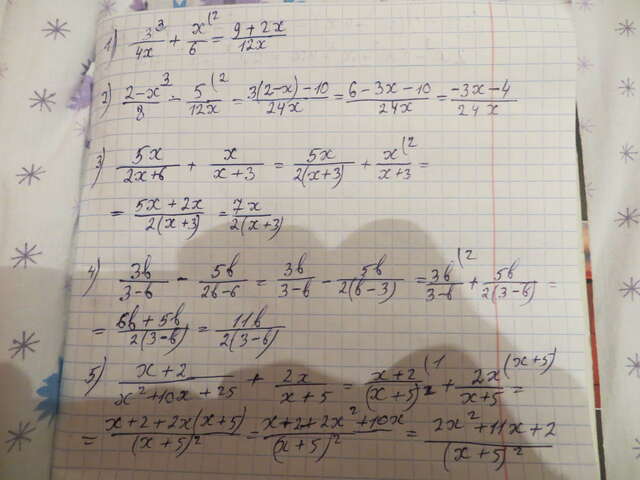 1) 3³/4x + x⁽²/6 = 9+2x/12x
2) 2-x³/8 - 5⁽²/12x = 3(2-x)-10/24x = 6-3x-10/24x = -3x-4/24x
3) 5x/2x+6 + x/x+3 = 5x/2(x+3) + x⁽²/x+3 =
= 5x+2x/2(x+3) = 7x/2(x+3)
4) 3b/3-b - 5b/2b-6 = 3b/3-b - 5b/2(b-3) = 3b⁽²/3-b + 5b/2(3-b) =
= 6b+5b/2(3-b) = 11b/2(3-b)
5) x+2/x²+10x+25 + 2x/x+5 = x+2⁽¹/(x+5)² + 2x⁽ˣ⁺⁵⁾/x+5 =
= x+2+2x(x+5)/(x+5)² = x+2+2x²+10x/(x+5)² = 2x²+11x+2/(x+5)²